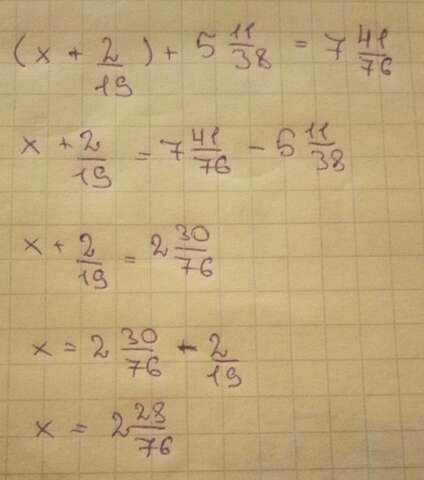 (x + 2/19) + 5 11/38 = 7 41/76
x + 2/19 = 7 41/76 - 5 11/38
x + 2/19 = 2 30/76
x = 2 30/76 - 2/19
x = 2 28/76